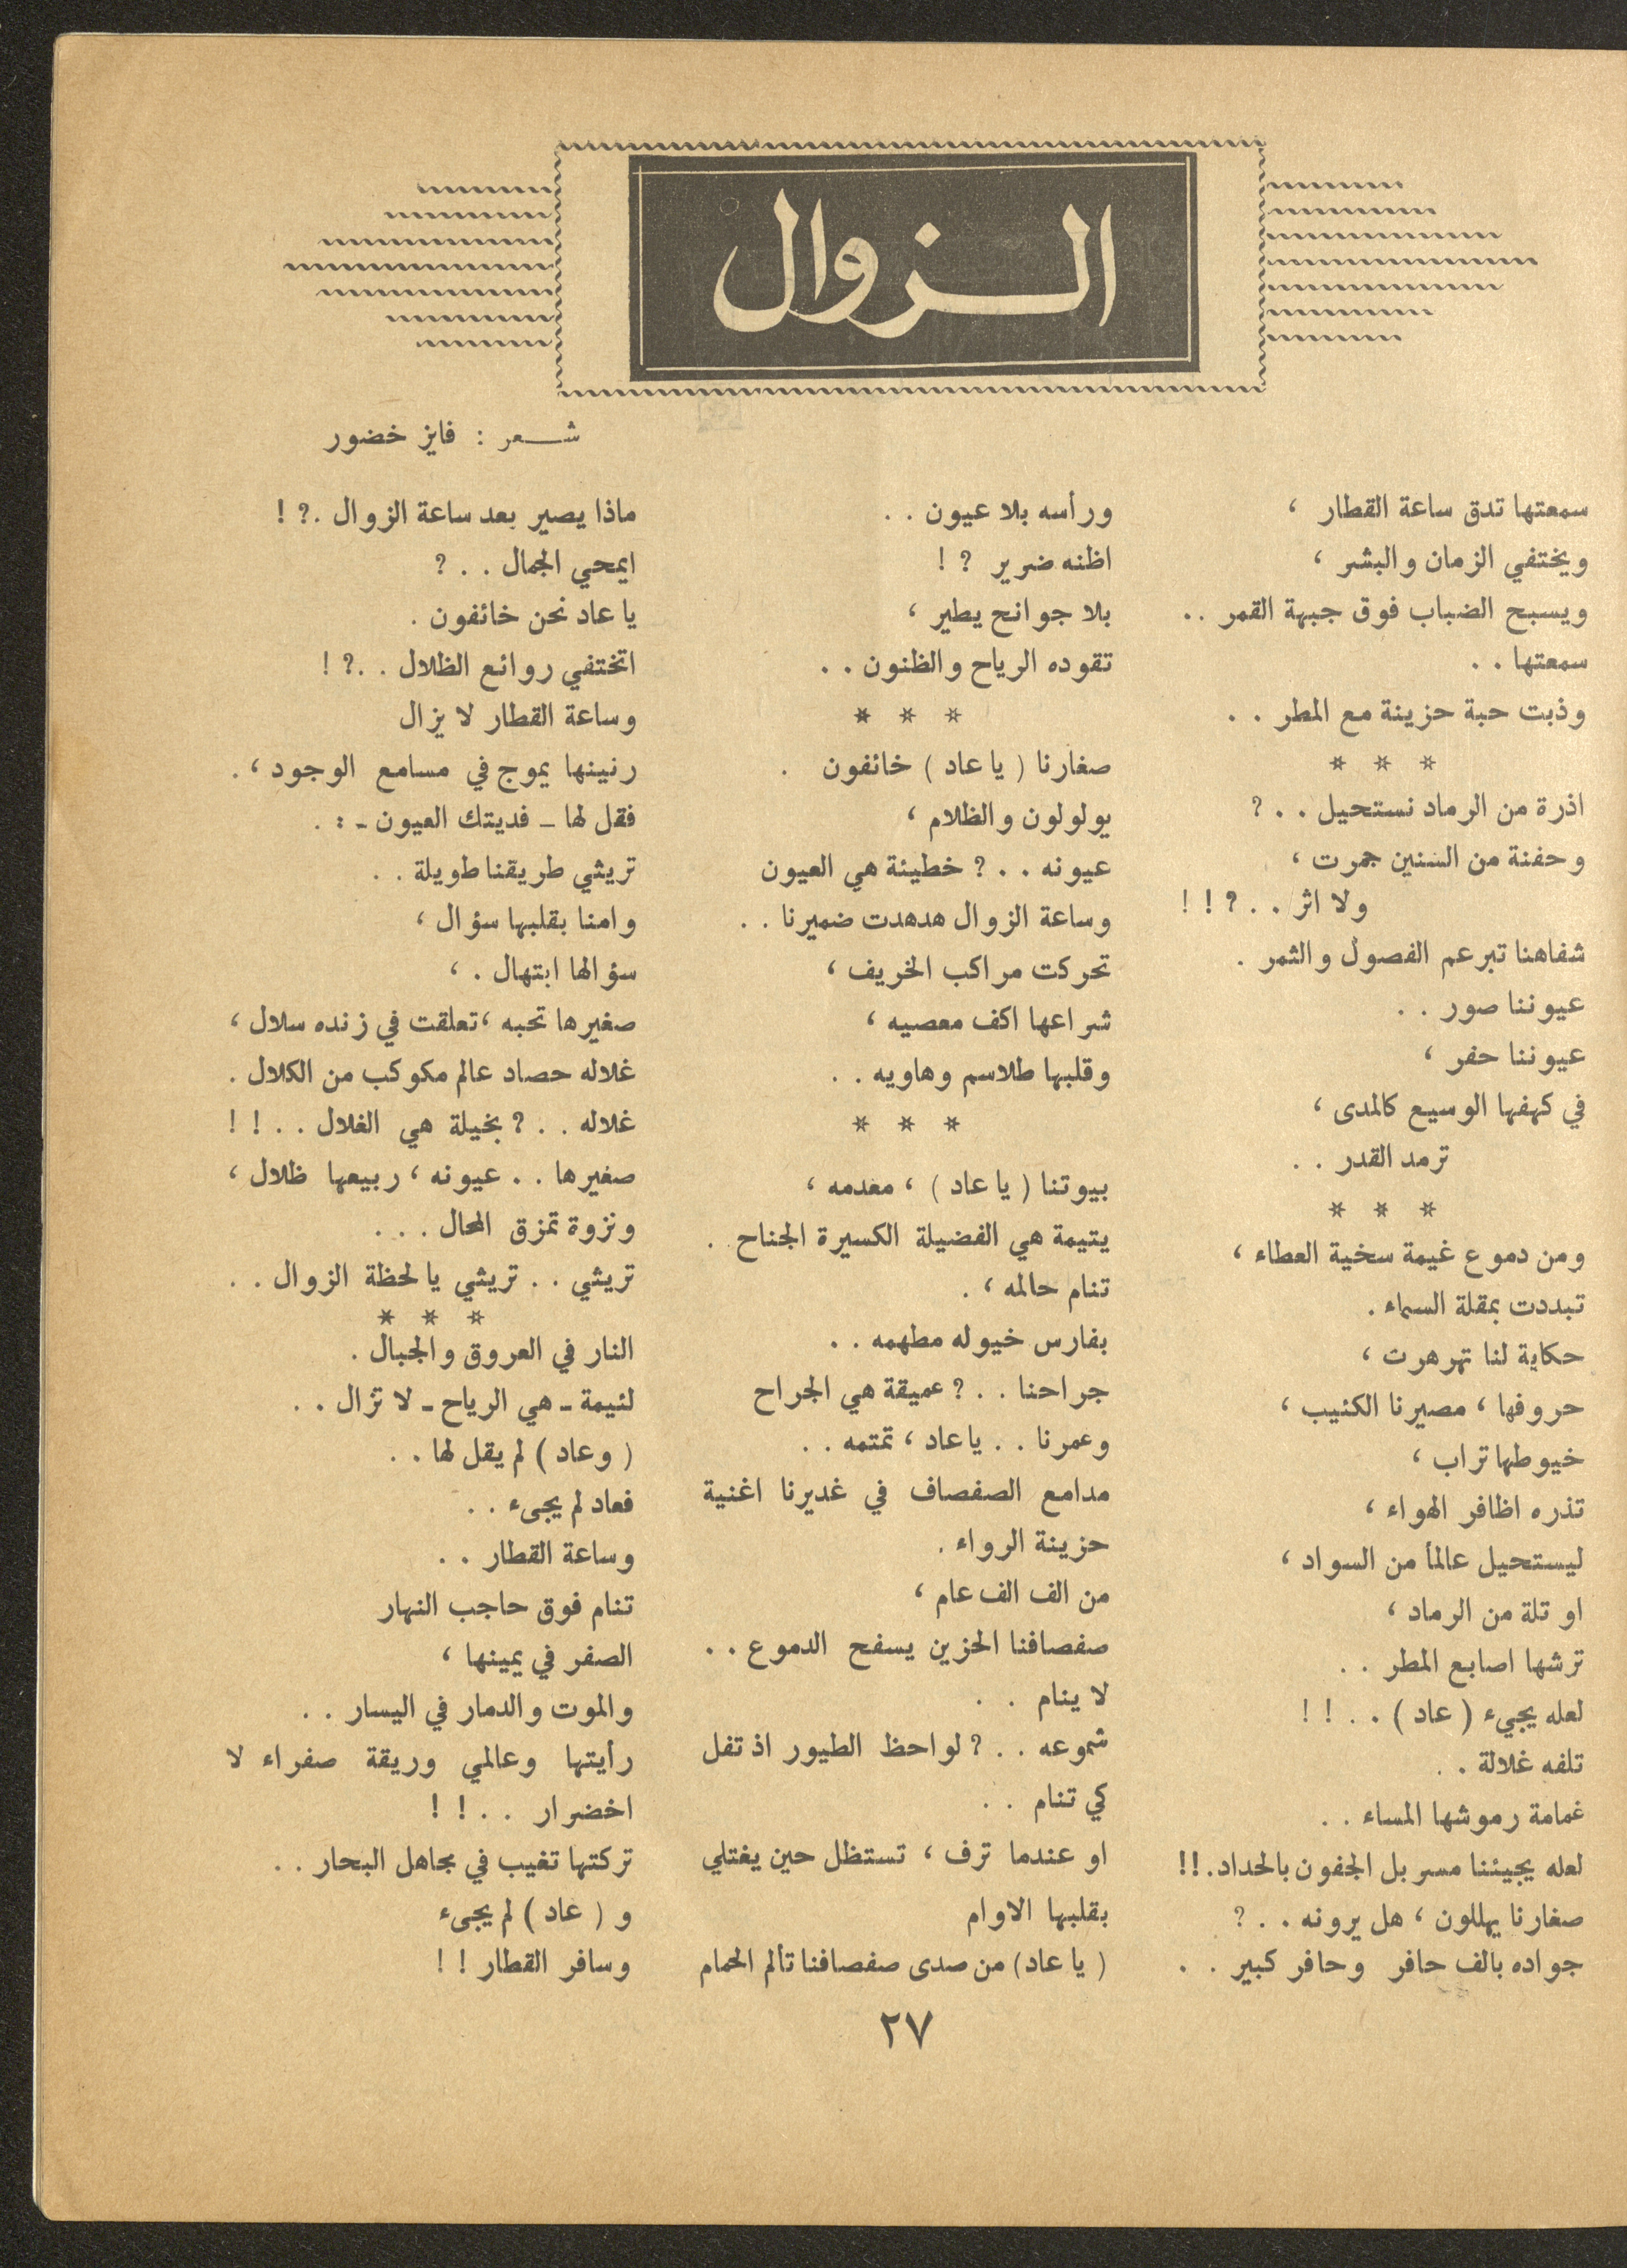 الزوال
شعر : فايز خضور
سمعتها تدق ساعة القطار ،
ويختفي الزمان والبشر ،
ويسبح الضباب فوق جبهة القمر ..
سمعتها . .
وذبت حبة حزينة مع المطر . .
* * *
اذرة من الرماد نستحيل . . ?
وحفنة من السنين جمرت ،
ولا اثر . . ? ! !
شفاهنا تبرعم الفصول والثمر .
عيوننا صور . .
عيوننا حفر ،
في كهفها الوسيع كالمدى ،
ترمد القدر . .
* * *
ومن دموع غيمة سخية العطاء ،
تبددت بمقلة السماء .
حكاية لنا تهرهرت ،
حروفها ، مصيرنا الكئيب ،
خيوطها تراب ،
تذره اظافر الهواء ،
ليستحيل عالماً من السواد ،
او تلة من الرماد ،
ترشها اصابع المطر . .
لعله يجيء ( عاد ) . . ! !
تلفه غلالة . .
غمامة رموشها المساء . .
لعله يجيئنا مسربل الجفون بالحداد . !!
صغارنا يهللون ، هل يرونه . . ?
جواده بالف حافر وحافر كبير . .
ورأسه بلا عيون . .
اظنه ضرير ? !
بلا جوانح يطير ،
تقوده الرياح والظنون . .
* * *
صغارنا ( يا عاد ) خائفون .
يولولون والظلام ،
عيونه . . ? خطيئة هي العيون
وساعة الزوال هدهدت ضميرنا . .
تحركت مراكب الخريف ،
شراعها اكف معصيه ،
وقلبها طلاسم وهاويه . .
* * *
بيوتنا ( يا عاد ) ، معدمه ،
يتيمة هي الفضيلة الكسيرة الجناح .
تنام حالمه ، .
بفارس خيوله مطهمه . .
جراحنا . . ? عميقة هي الجراح
وعمرنا . . يا عاد ، تمتمه . .
مدامع الصفصاف في غديرنا اغنية
حزينة الرواء .
من الف الف عام ،
صفصافنا الحزين يسفح الدموع . .
لا ينام . .
شموعه . . ? لواحظ الطيور اذ تفل
كي تنام . .
او عندما ترف ، تستظل حين يغتلي
بقلبها الاوام
( يا عاد ) من صدى صفصافنا تألم الحمام
ماذا يصير بعد ساعة الزوال . ? !
ايمحي الجمال . . ?
يا عاد نحن خائفون .
اتختفي روائع الظلال . . ? !
وساعة القطار لا يزال
رنينها يموج في مسامع الوجود ، .
فقل لها ــ فديتك العيون ــ : .
تريثي طريقنا طويلة . .
وامنا بقلبها سؤال ،
سؤالها ابتهال . ،
صغيرها تحبه ، تعلقت في زنده سلال ،
غلاله حصاد عالم مكوكب من الكلال .
غلاله . . ? بخيلة هي الغلال . . ! !
صغيرها . . عيونه ، ربيعها ظلال ،
ونزوة تمزق المحال . . .
تريثي . . تريثي يا لحظة الزوال . .
* * *
النار في العروق والجبال .
لئيمة ــ هي الرياح ــ لا تزال . .
( وعاد ) لم يقل لها . .
فعاد لم يجىء . .
وساعة القطار . .
تنام فوق حاجب النهار
الصفر في يمينها ،
والموت والدمار في اليسار . .
رأيتها وعالمي وريقة صفراء لا
اخضرار . . ! !
تركتها تغيب في مجاهل البحار . .
و ( عاد ) لم يجىء
وسافر القطار ! !
٢٧